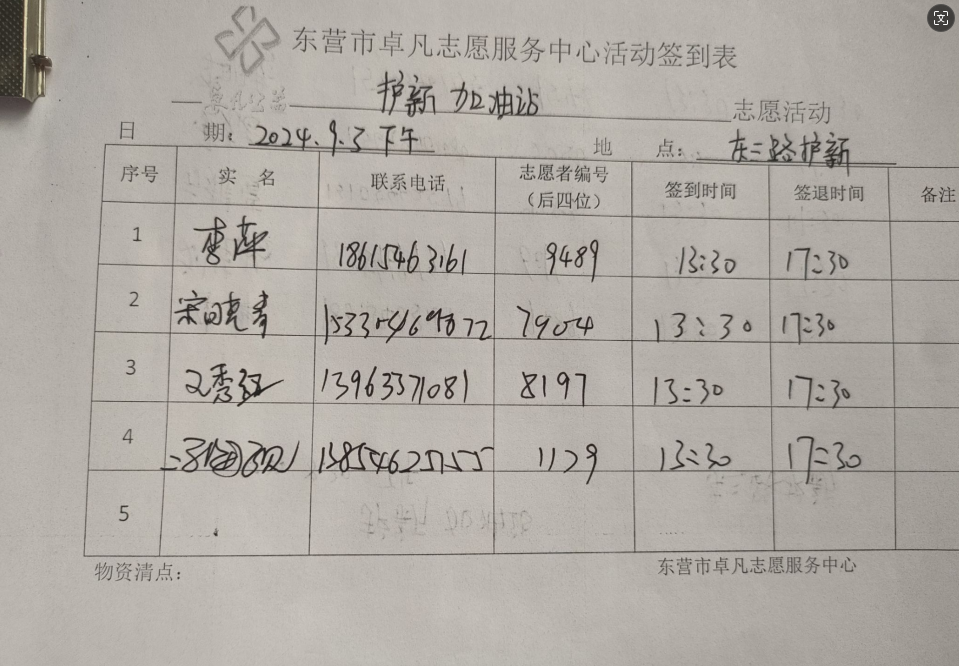 东营市卓凡志愿服务中心活动签到表
护新加油站 志愿活动
日 期: 2024.9.3 下午 地 点: 东三路护新
序号 实 名 联系电话 志愿者编号（后四位） 签到时间 签退时间 备注
1 李萍 18615463161 9489 13:30 17:30
2 宋晓青 7904 13:30 17:30
3 秀红 13963371081 8197 13:30 17:30
4 13854625755 1129 13:30 17:30
5
物资清点: 东营市卓凡志愿服务中心